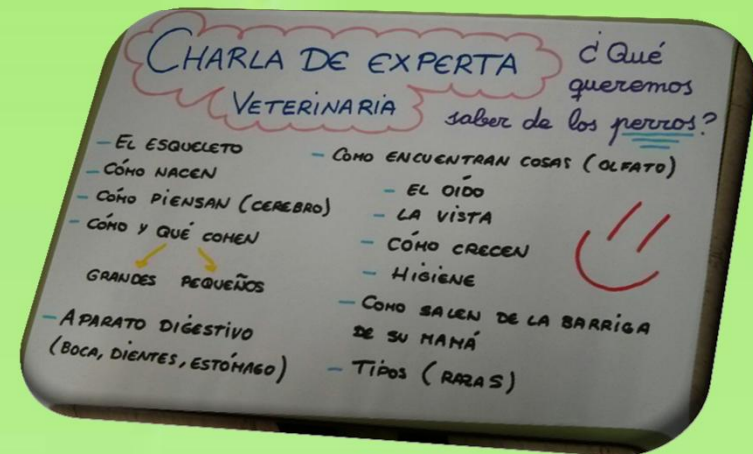 CHARLA DE EXPERTA
VETERINARIA
¿Qué
queremos
saber de los perros?
- EL ESQUELETO
- CÓMO NACEN
- CÓMO PIENSAN (CEREBRO)
- CÓMO Y QUÉ COMEN
GRANDES PEQUEÑOS
- APARATO DIGESTIVO
(BOCA, DIENTES, ESTÓMAGO)
- COMO ENCUENTRAN COSAS (OLFATO)
- EL OIDO
- LA VISTA
- CÓMO CRECEN
- HIGIENE
- COMO SALEN DE LA BARRIGA
DE SU MAMÁ
- TIPOS (RAZAS)